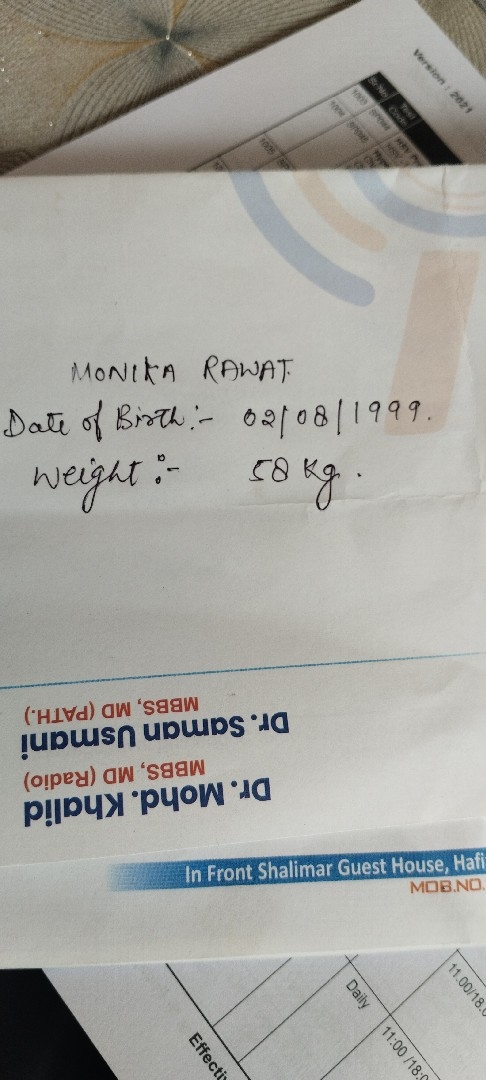 Version : 2021
Sr.No Test
1003
1004
1005
MONIKA RAWAT.
Date of Birth:- 02/08/1999.
Weight:- 58 Kg.
Dr. Mohd. Khalid
MBBS, MD (Radio)
Dr. Saman Usmani
MBBS, MD (PATH.)
In Front Shalimar Guest House, Hafi
MOB.NO.
Daily
11:00 /18:0
11.00/18.0
Effecti